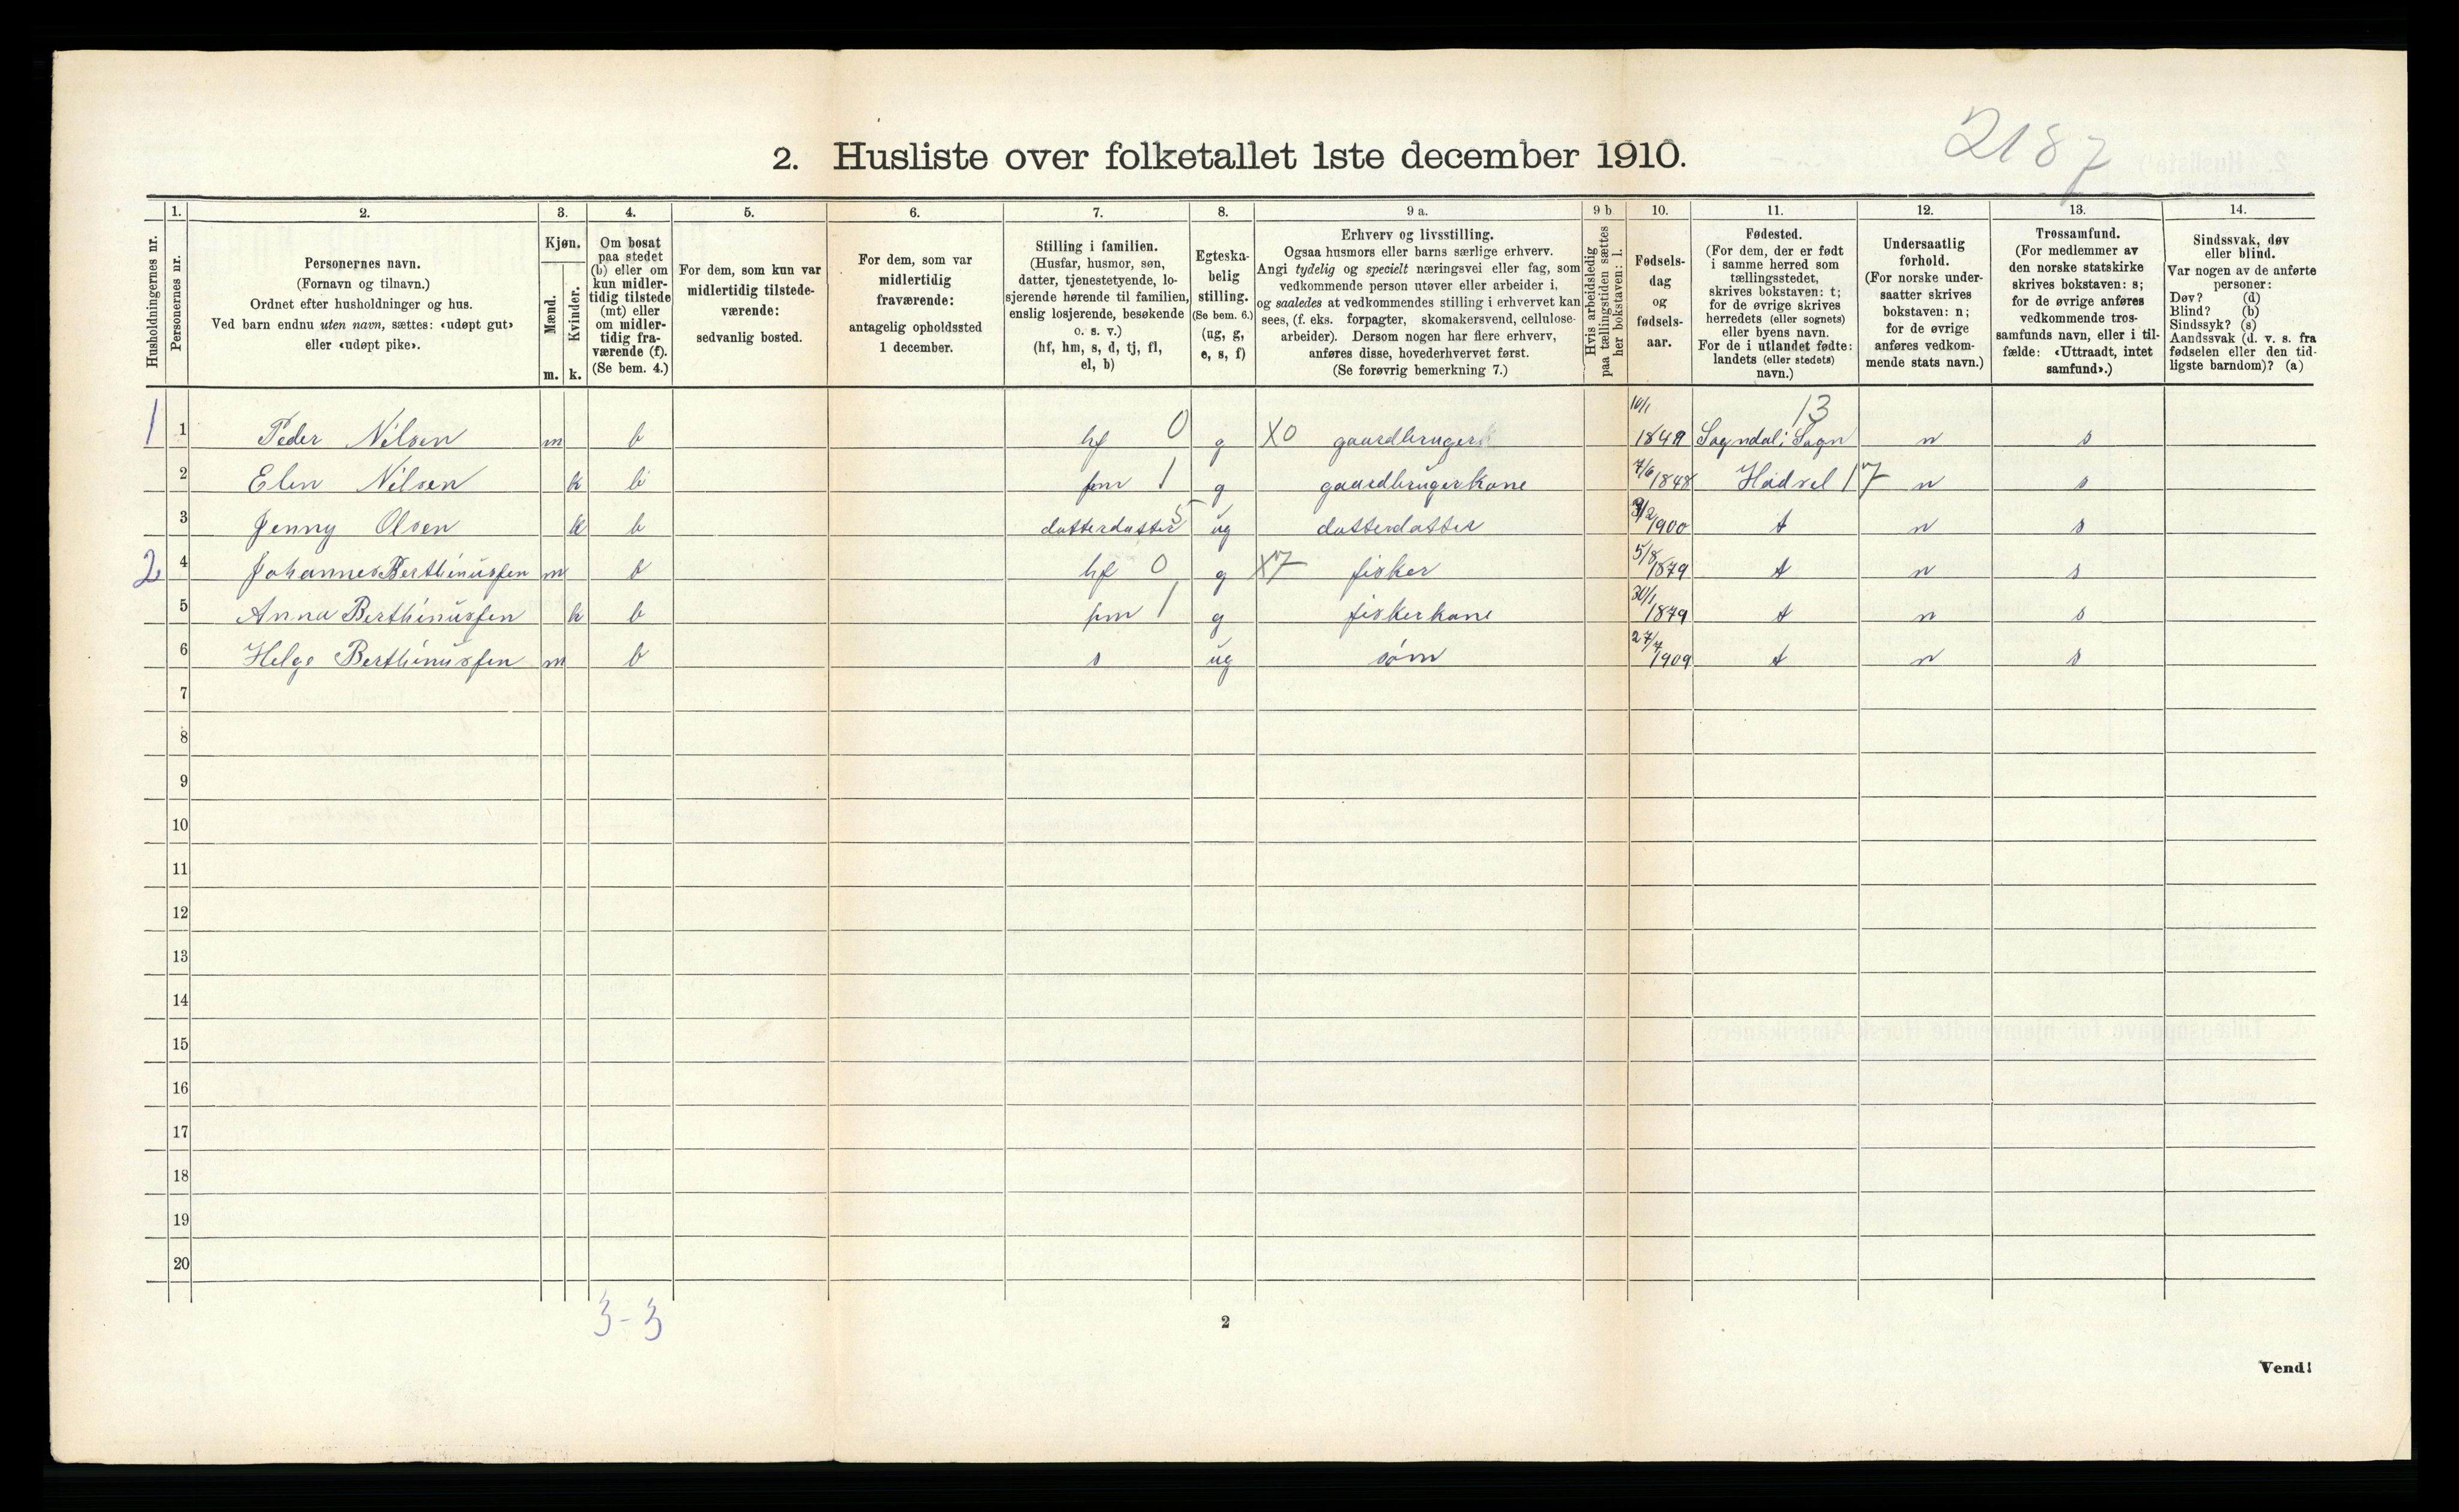 2187
2. Husliste over folketallet 1ste december 1910.
Husholdningernes nr.
1.
Personernes nr.
2.
Personernes navn.
(Fornavn og tilnavn.)
Ordnet efter husholdninger og hus.
Ved barn endnu uten navn, sættes: «udøpt gut»
eller «udøpt pike».
3.
Kjøn.
Mænd.
Kvinder.
m. k.
4.
Om bosat
paa stedet
(b) eller om
kun midler-
tidig tilstede
(mt) eller
om midler-
tidig fra-
værende (f).
(Se bem. 4.)
5.
For dem, som kun var
midlertidig tilstede-
værende:
sedvanlig bosted.
6.
For dem, som var
midlertidig
fraværende:
antagelig opholdssted
1 december.
7.
Stilling i familien.
(Husfar, husmor, søn,
datter, tjenestetyende, lo-
sjerende hørende til familien,
enslig losjerende, besøkende
o. s. v.)
(hf, hm, s, d, tj, fl,
el, b)
8.
Egteska-
belig
stilling.
(Se bem. 6.)
(ug, g,
e, s, f)
9 a.
Erhverv og livsstilling.
Ogsaa husmors eller barns særlige erhverv.
Angi tydelig og specielt næringsvei eller fag, som
vedkommende person utøver eller arbeider i,
og saaledes at vedkommendes stilling i erhvervet kan
sees, (f. eks. forpagter, skomakersvend, cellulose-
arbeider). Dersom nogen har flere erhverv,
anføres disse, hovederhvervet først.
(Se forøvrig bemerkning 7.)
9 b
Hvis arbeidsledig
paa tællingstiden sættes
her bokstaven: l.
10.
Fødsels-
dag
og
fødsels-
aar.
11.
Fødested.
(For dem, der er født
i samme herred som
tællingsstedet,
skrives bokstaven: t;
for de øvrige skrives
herredets (eller sognets)
eller byens navn.
For de i utlandet fødte:
landets (eller stedets)
navn.)
12.
Undersaatlig
forhold.
(For norske under-
saatter skrives
bokstaven: n;
for de øvrige
anføres vedkom-
mende stats navn.)
13.
Trossamfund.
(For medlemmer av
den norske statskirke
skrives bokstaven: s;
for de øvrige anføres
vedkommende tros-
samfunds navn, eller i til-
fælde: «Uttraadt, intet
samfund».)
14.
Sindssvak, døv
eller blind.
Var nogen av de anførte
personer:
Døv? (d)
Blind? (b)
Sindssyk? (s)
Aandssvak (d. v. s. fra
fødselen eller den tid-
ligste barndom)? (a)
1 1 Peder Nilsen m b hf 0 g X0 gaardbruger 10/1 1849 Sogndal i Sogn 13 n s
2 Elen Nilsen k b hm 1 g gaardbrugerkone 7/6 1848 Hadsel 17 n s
3 Jenny Olsen k b datterdatter 5 ug datterdatter 1900 t n s
2 4 Johannes Berthinussen m b hf 0 g X7 fisker 5/8 1879 t n s
5 Anna Berthinussen k b hm 1 g fiskerkone 30/1 1879 t n s
6 Helge Berthinussen m b s ug søn 27/7 1909 t n s
7
8
9
10
11
12
13
14
15
16
17
18
19
20
3-3
2
Vend!